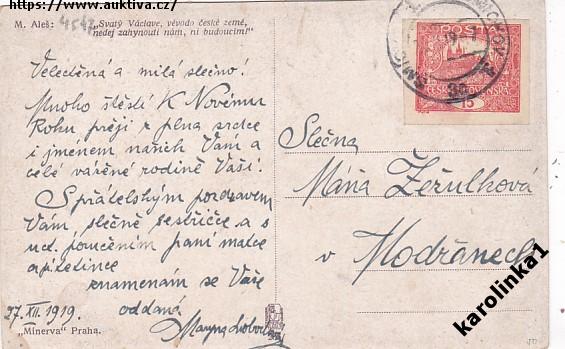 https://www.auktiva.cz/
M. Aleš: „Svatý Václave, vévodo české země,
nedej zahynouti nám, ni budoucím!"
4542
Velectěná a milá slečno!
Mnoho štěstí K Novému
Roku přeji z plna srdce
i jménem našich Vám a
celé vážené rodině Vaší.
S přátelským pozdravem
Vám, slečně sestřičce a s
uct. poručením paní matce
a p. tetince
znamenám se Vaše
oddaná
27. XII. 1919.
„Minerva" Praha.
POŠTA
ČESKO-SLOVENSKÁ
15
Slečna
Máňa Žežulková
v
Modřanech
karolinka1